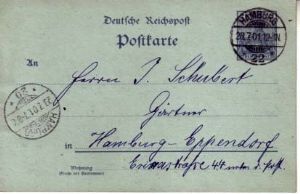 Deutsche Reichspost
Postkarte
HAMBURG
28.7.01.12-1N
22
An
Herrn J. Schubert
Gärtner
in Hamburg-Eppendorf
Wohnung
(Straße und Hausnummer)
44